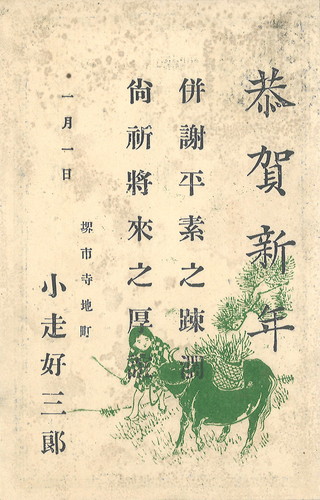 恭賀新年
併謝平素之疎濶
尚祈將來之厚誼
一月一日
堺市寺地町
小走好三郎